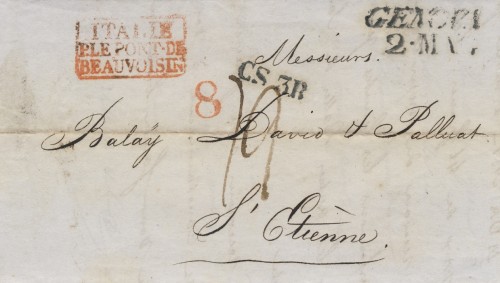 ITALIE
P.LE PONT-DE
BEAUVOISIN
GENOVA
2·MAG.
Messieurs.
C.S. 3R
8
Balaÿ David & Palluat
St Etienne.